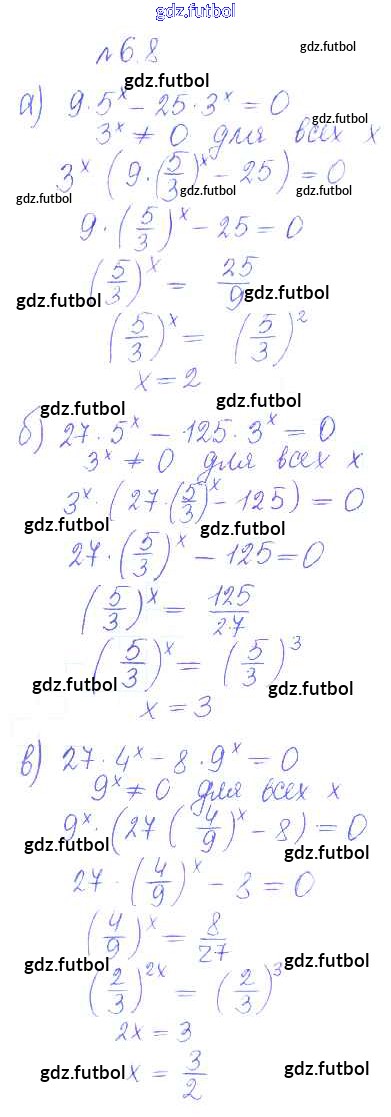 gdz.futbol
№6.8
gdz.futbol
gdz.futbol
а) 9·5^x − 25·3^x = 0
gdz.futbol
3^x ≠ 0 для всех x
3^x (9·(5/3)^x − 25) = 0
gdz.futbol gdz.futbol gdz.futbol
9·(5/3)^x − 25 = 0
(5/3)^x = 25/9
gdz.futbol gdz.futbol
(5/3)^x = (5/3)^2
x = 2
gdz.futbol gdz.futbol
б) 27·5^x − 125·3^x = 0
3^x ≠ 0 для всех x
3^x·(27·(5/3)^x − 125) = 0
gdz.futbol gdz.futbol
27·(5/3)^x − 125 = 0
(5/3)^x = 125/27
(5/3)^x = (5/3)^3
gdz.futbol gdz.futbol
x = 3
в) 27·4^x − 8·9^x = 0
9^x ≠ 0 для всех x
9^x·(27 (4/9)^x − 8) = 0
gdz.futbol gdz.futbol
27·(4/9)^x − 8 = 0
(4/9)^x = 8/27
gdz.futbol gdz.futbol
(2/3)^2x = (2/3)^3
2x = 3
gdz.futbol gdz.futbol
x = 3/2